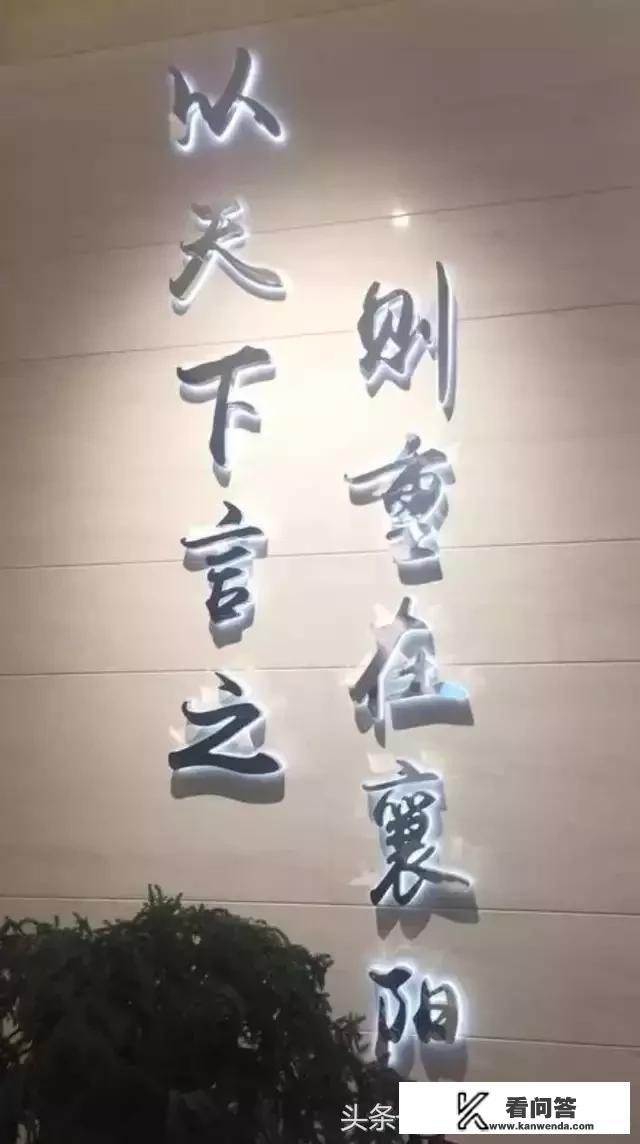 以天下言之
则重在襄阳
头条
看问答
www.kanwenda.com